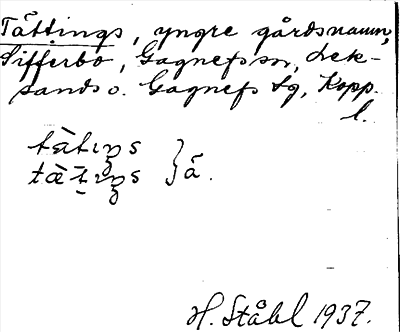 Tättings, yngre gårdsnamn,
Sifferbo, Gagnefs sn, Lek-
sands o. Gagnefs tg, Kopp.
l.
tὰtıŋs
tæ̀t̠ıŋs } å.
H. Ståhl 1937.